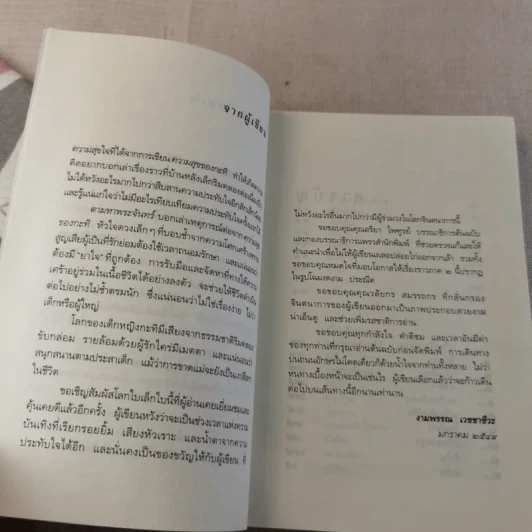 จากผู้เขียน
ความสุขใจที่ได้จากการเขียน ความสุขของกะทิ ทำให้เกิดความ
คิดอยากบอกเล่าเรื่องราวที่บ้านหลังเล็กริมคลองต่อเนื่อง
ไม่ได้หวังอะไรมากไปกว่าสืบสานความประทับใจอีกสัก
และรู้แน่แก่ใจว่าไม่มีอะไรเทียบเทียมความประทับใจครั้งแรกได้
ตามหาพระจันทร์ บอกเล่าเหตุการณ์ต่อจาก ความสุข
ของกะทิ หัวใจดวงเล็กๆ ที่บอบช้ำจากความโศกเศร้าเพราะ
สูญเสียผู้เป็นที่รักย่อมต้องใช้เวลาถนอมรักษา และแน่นอน
ต้องมี 'ยาใจ' ที่ถูกต้อง การรับมือและจัดหาที่ทางให้ความ
เศร้าอยู่ร่วมในเนื้อชีวิตได้อย่างลงตัว จะช่วยให้ชีวิตดำเนิน
ต่อไปอย่างไม่ซ้ำตรมนัก ซึ่งแน่นอนว่าไม่ใช่เรื่องง่าย ไม่ว่า
เด็กหรือผู้ใหญ่
โลกของเด็กหญิงกะทิมีเสียงจากธรรมชาติริมคลอง
ขับกล่อม รายล้อมด้วยผู้รักใคร่มีเมตตา และแน่นอน
สนุกสนานตามประสาเด็ก แม้ว่าการขาดแม่จะยังเป็น
ในชีวิต
ขอเชิญสัมผัสโลกใบเล็กใบนี้ที่ผู้อ่านเคยเยี่ยมชมและ
คุ้นเคยดีแล้วอีกครั้ง ผู้เขียนหวังว่าจะเป็นช่วงเวลาแห่งความ
บันเทิงที่เรียกรอยยิ้ม เสียงหัวเราะ และน้ำตาจากความ
ประทับใจได้อีก และนั่นคงเป็นของขวัญให้กับผู้เขียน ที่
ไม่หวังอะไรอื่นมากไปกว่ามีผู้ร่วมวงในโลกจินตนาการนี้
ขอขอบคุณคุณอริยา ไพฑูรย์ บรรณาธิการต้นฉบับ
และกองบรรณาธิการแพรวสำนักพิมพ์ ที่ช่วยตรวจแก้และให้
คำแนะนำเพื่อไม่ให้ผู้เขียนเผลอปล่อยไก่ออกจากเล้า รวมทั้ง
ขอขอบคุณหมดใจที่มอบโอกาสให้เรื่องราวภาค ๒ นี้ปรากฏ
ในรูปโฉมงดงาม ประณีต
ขอขอบคุณคุณวลัยกร สมรรถกร ที่กลั่นกรอง
จินตนาการของผู้เขียนออกมาเป็นภาพประกอบสวยงาม
น่าเอ็นดู และช่วยเพิ่มรสชาติการอ่าน
ขอขอบคุณทุกกำลังใจ คำติชม และเวลาอันมีค่า
ของทุกท่านที่กรุณาอ่านต้นฉบับก่อนจัดพิมพ์ การเดินทาง
บนถนนอักษรไม่โดดเดี่ยวก็ด้วยน้ำใจจากท่านทั้งหลาย ไม่ว่า
หนทางเบื้องหน้าจะเป็นเช่นไร ผู้เขียนเลือกแล้วว่าจะก้าวเดิน
ต่อไปบนเส้นทางนี้อีกนานเท่านาน
งามพรรณ เวชชาชีวะ
มกราคม ๒๕๔๙